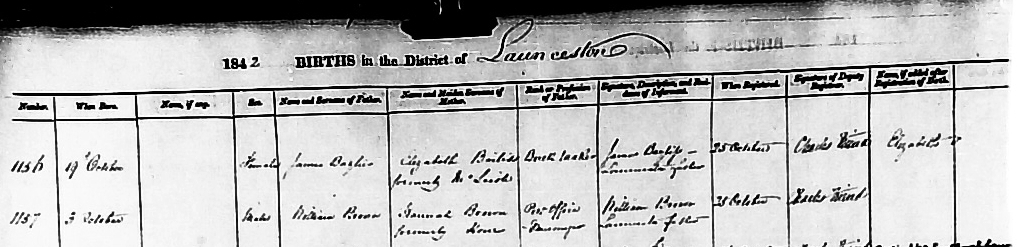 1842 BIRTHS in the District of Launceston
Number. When Born. Name, if any. Sex. Name and Surname of Father. Name and Maiden Surname of Mother. Rank or Profession of Father. Signature, Description, and Residence of Informant. When Registered. Signature of Deputy Registrar. Name, if added after Registration of Birth.
1156 19th October Female James Elizabeth 25 October Charles Elizabeth
formerly McLeish Launceston father
1157 3 October Male William Brown Hannah Brown Post Office William Brown 25 October Charles
formerly Messenger Launceston father